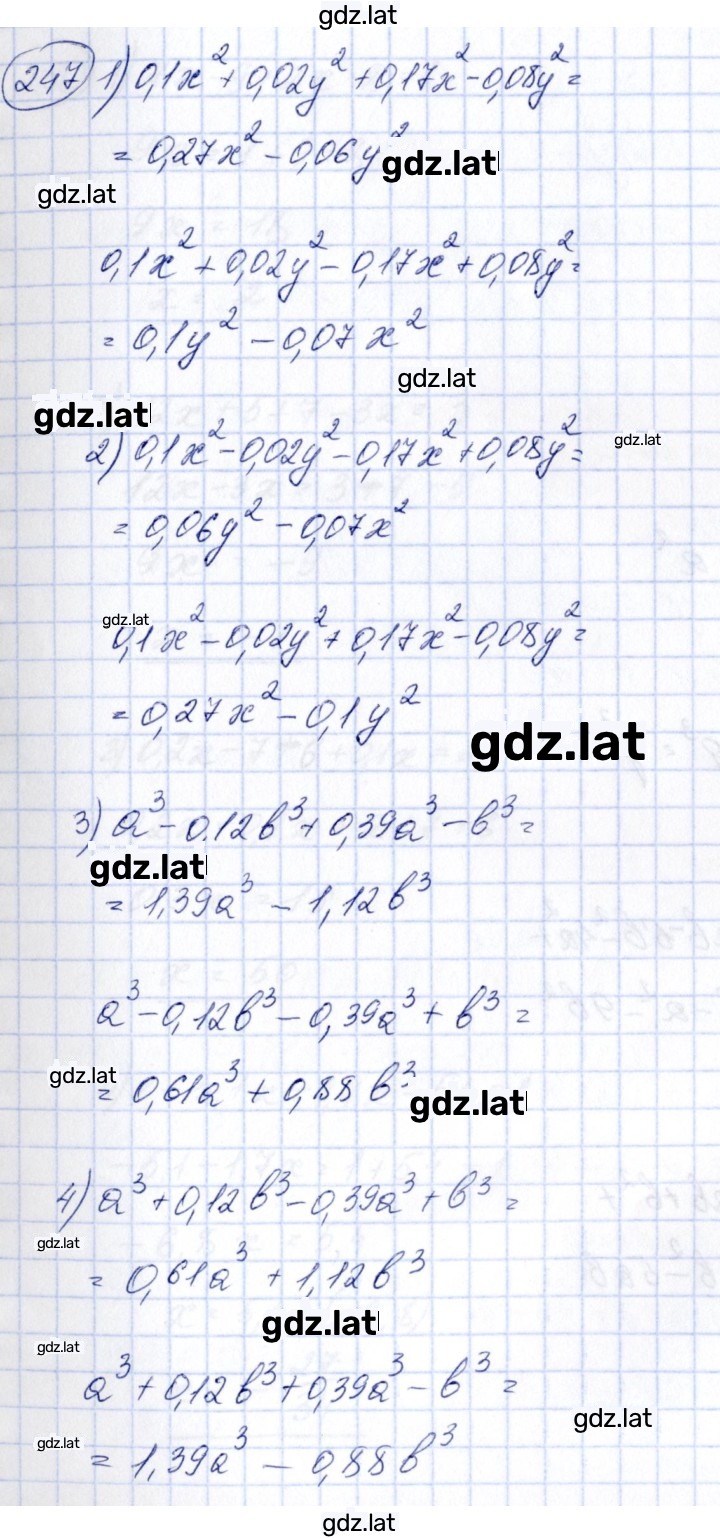 gdz.lat
247 1) 0,1x² + 0,02y² + 0,17x² - 0,08y² =
= 0,27x² - 0,06y²
gdz.lat
gdz.lat
0,1x² + 0,02y² - 0,17x² + 0,08y² =
= 0,1y² - 0,07x²
gdz.lat
gdz.lat
2) 0,1x² - 0,02y² - 0,17x² + 0,08y² =
gdz.lat
= 0,06y² - 0,07x²
gdz.lat
0,1x² - 0,02y² + 0,17x² - 0,08y² =
= 0,27x² - 0,1y²
gdz.lat
3) a³ - 0,12b³ + 0,39a³ - b³ =
gdz.lat
= 1,39a³ - 1,12b³
a³ - 0,12b³ - 0,39a³ + b³ =
gdz.lat
= 0,61a³ + 0,88b³
gdz.lat
4) a³ + 0,12b³ - 0,39a³ + b³ =
gdz.lat
= 0,61a³ + 1,12b³
gdz.lat
gdz.lat
a³ + 0,12b³ + 0,39a³ - b³ =
gdz.lat
gdz.lat
= 1,39a³ - 0,88b³
gdz.lat